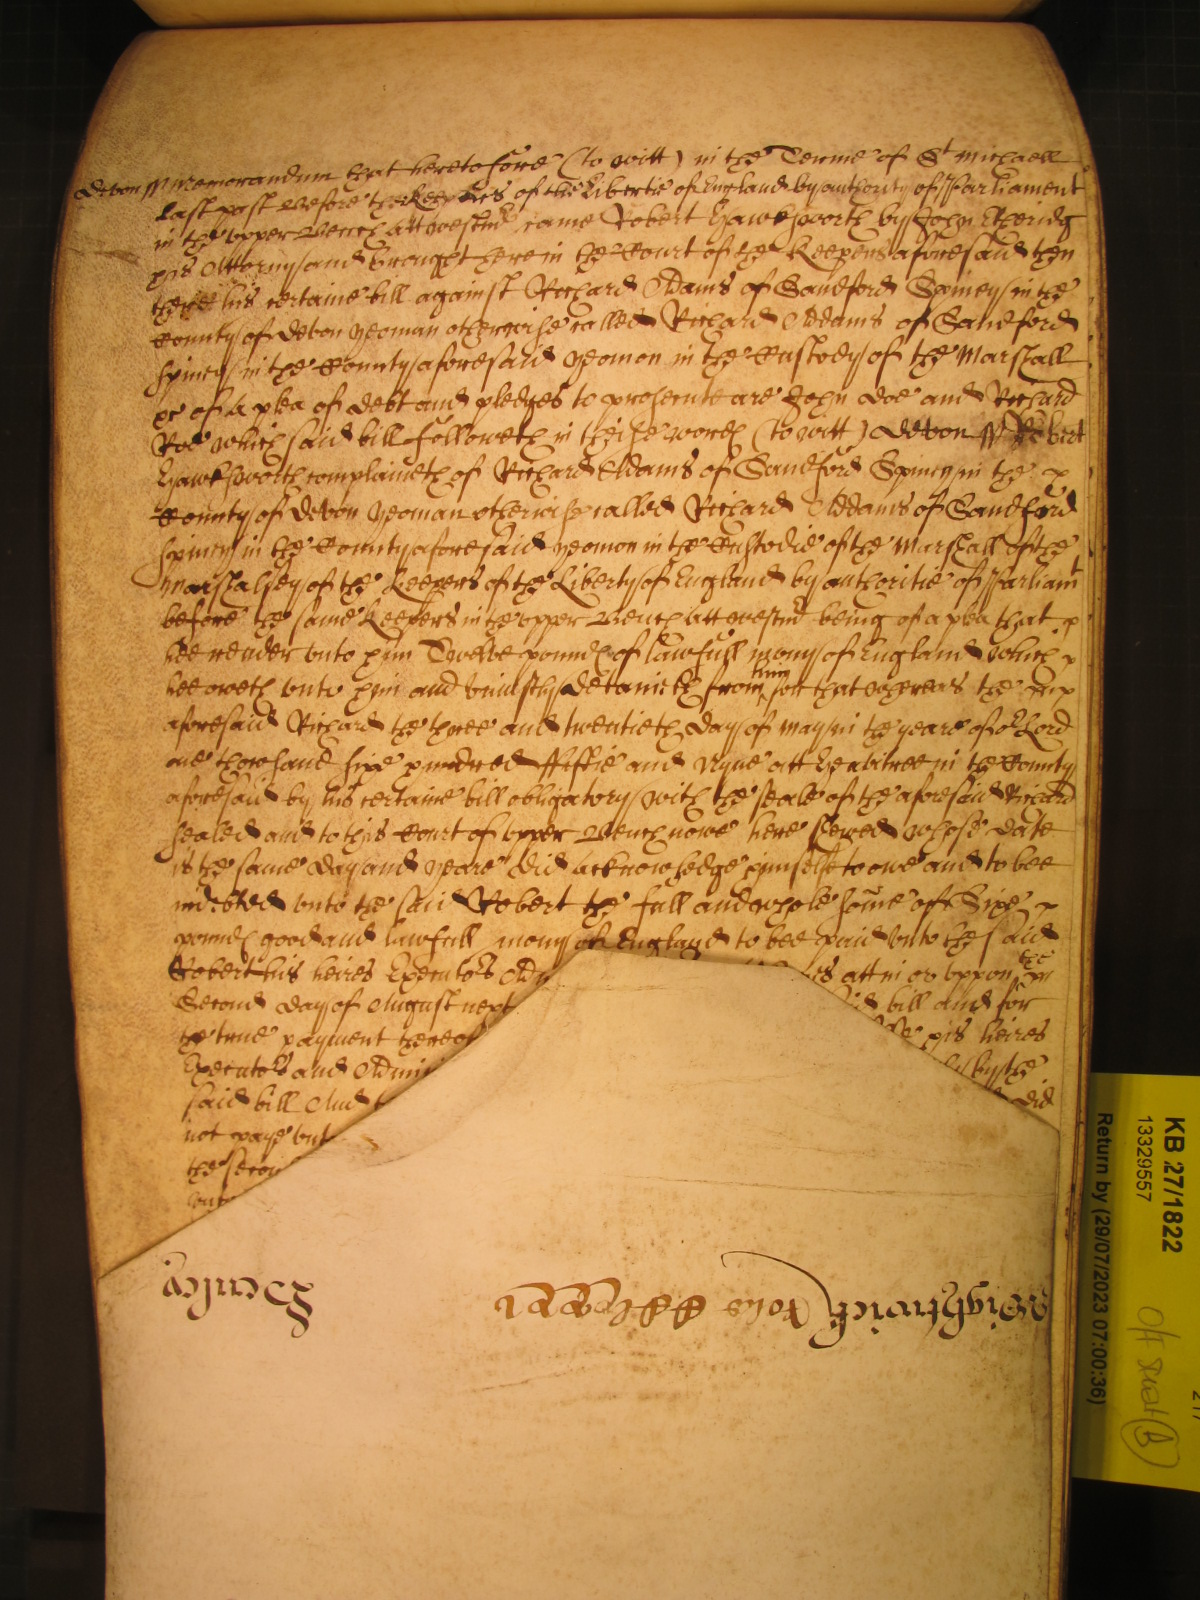 Devon ss Memorandum that heretofore (to witt) in the Terme of St Michaell
last past before the Keepers of the Libertie of England by authority of Parliament
in the upper Bench att Westmr came Robert Hawksworth by John Etheridg
his Attorny and brought here in the Court of the Keepers aforesaid then
there his certaine bill against Richard Adams of Sandford Spiney in the
County of Devon yeoman otherwise called Richard Addams of Sandford
Spiney in the County aforesaid yeoman in the Custody of the Marshall
&c of a plea of debt and pledges to prosecute are John Doe and Richard
Roe which said bill followeth in theise words (to witt) Devon ss Robert
Hawksworth complaineth of Richard Adams of Sandford Spiney in the
County of Devon yeoman otherwise called Richard Addams of Sandford
Spiney in the County aforesaid yeoman in the Custodie of the Marshall of the
Marshalsey of the Keepers of the Liberty of England by authoritie of Parliamt
before the same Keepers in the upper Bench att Westmr being of a plea that
hee render unto him Twelve pounds of lawfull mony of England which
hee oweth unto him and uniustly detaineth from him for that whereas the
aforesaid Richard the three and twentieth day of May in the yeare of or Lord
one thowsand sixe hundred fiftie and nyne att Heavitree in the County
aforesaid by his certaine bill obligatory with the seale of the aforesaid Richard
sealed and to this Court of upper Bench nowe here shewed whose date
is the same day and yeare did acknowledge himselfe to owe and to bee
indebted unto the said Robert the full and whole some of Sixe
pounds good and lawfull mony of England to bee paid unto the said
Robert his heires Executors Adm att in or uppon the
Second day of August next bill and for
the true payment thereof his heires
Executors and Admini by the
said bill And did
not paye unt
the secon
KB 27/1822
13329557
Return by (29/07/2023 07:00:36)
Wightwick
Henley